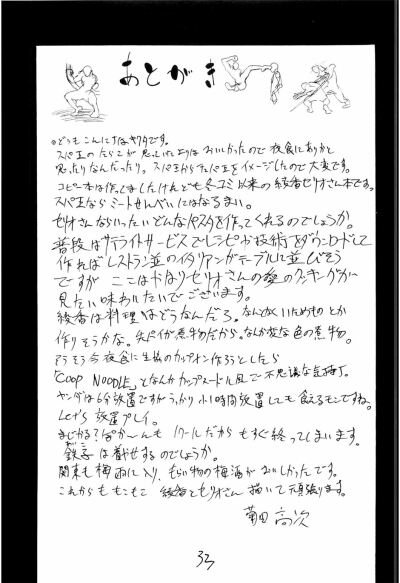 あとがき
。どうもこんにちは、キクタです。
スパ王のたらこが思っていたよりはおいしかったので夜食にありかと
思ったりなんだったり。スパ王からスパ王をイメージしたので大変です。
コピー本は作りましたけれども冬コミ以来の綾香セリオさん本です。
スパ王ならミートせんべいにはなるまい。
セリオさんならいったいどんなパスタを作ってくれるのでしょうか。
普段はサテライトサービスでレシピか技術をダウンロードして
作ればレストラン並のイタリアンがテーブルに並びそう
ですが ここはやはりセリオさんの愛のクッキングが
見たい味わいたいでございます。
綾香は料理はどうなんだろ。なんとなくいためものとか
作りそうかな。失敗が煮物だから。なんか変な色の煮物。
そう今夜食に生協のカップオン作ろうとしたら
「COOP NOODLE」となんかカップヌードル風で不思議な気持ち。
は6分放置ですがうっかり小1時間放置しても食えるモンですね。
Let's 放置プレイ。
まじかる？ぽか〜んも1クールだからもすぐ終ってしまいます。
鉄子は載せするのでしょうか。
関東も梅雨に入り、もらい物の梅酒がおいしかったです。
これからももこもこ 綾香とセリオさん描いて頑張ります。
菊田 高次
33